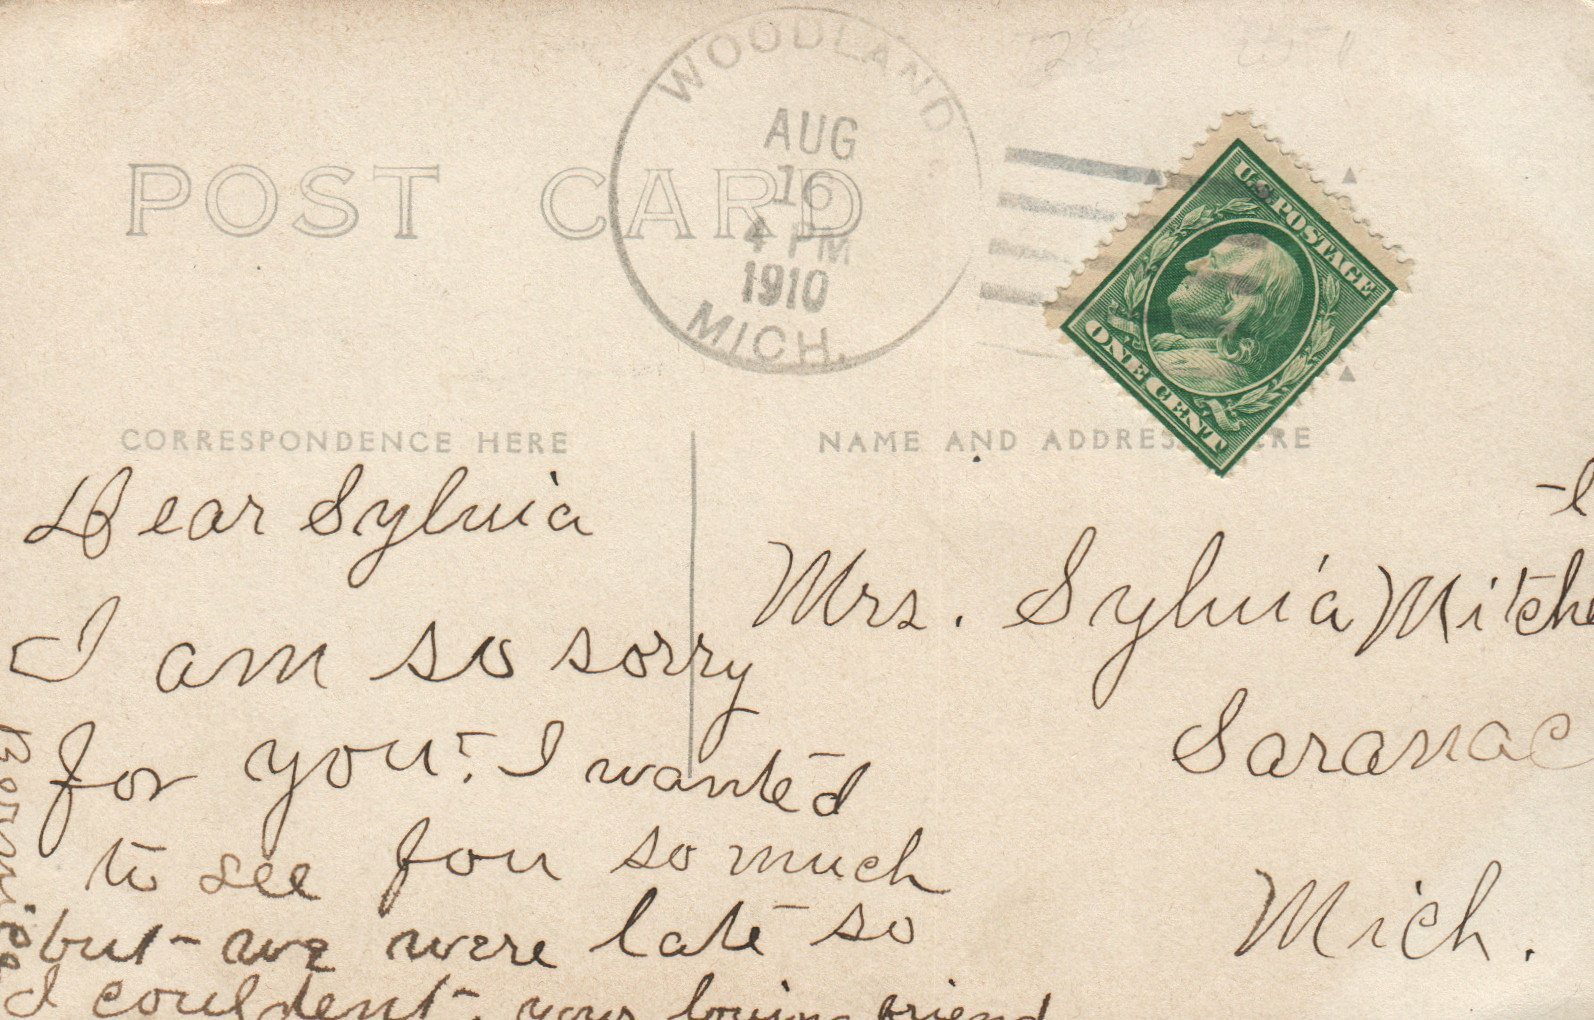 WOODLAND.
AUG
16
4 PM
1910
MICH.
POST CARD
U.S. POSTAGE
ONE CENT
CORRESPONDENCE HERE
NAME AND ADDRESS HERE
Dear Sylvia
I am so sorry
for you. I wanted
to see you so much
but we were late so
I couldent. your loving friend
Mrs. Sylvia Mitche
-l
Saranac
Mich.